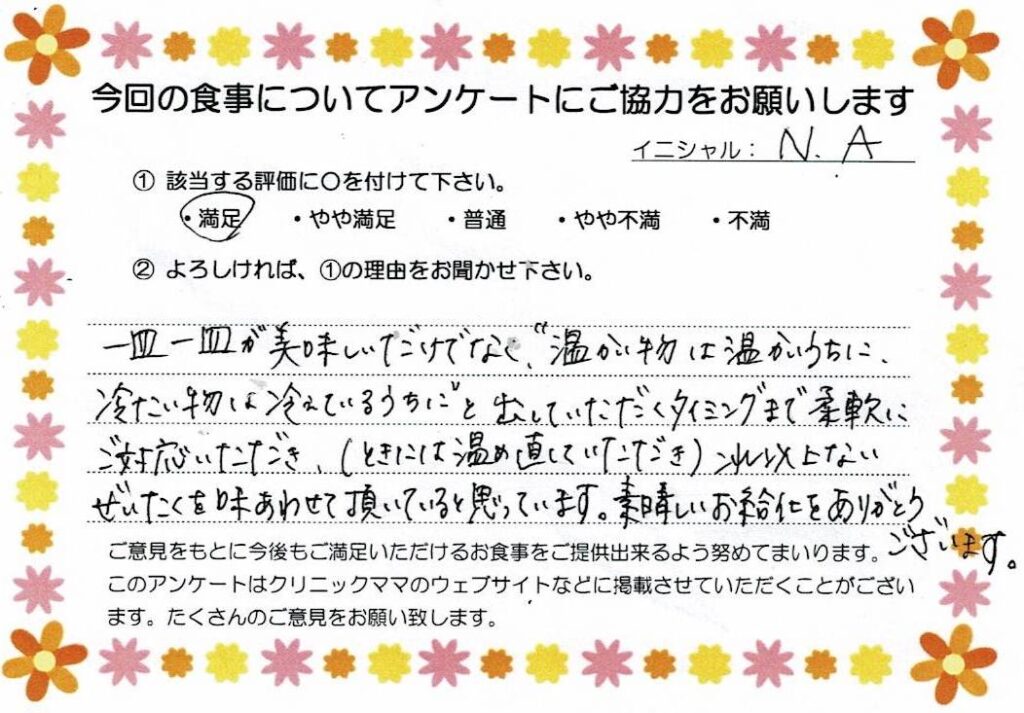 今回の食事についてアンケートにご協力をお願いします
イニシャル： N. A
① 該当する評価に〇を付けて下さい。
・満足 ・やや満足 ・普通 ・やや不満 ・不満
② よろしければ、①の理由をお聞かせ下さい。
一皿一皿が美味しいだけでなく、“温かい物は温かいうちに、
冷たい物は冷えているうちに”と出していただくタイミングまで柔軟に
ご対応いただき、(ときには温め直していただき) これ以上ない
ぜいたくを味あわせて頂いていると思っています。素晴しいお給仕をありがとう
ございます。
ご意見をもとに今後もご満足いただけるお食事をご提供出来るよう努めてまいります。
このアンケートはクリニックママのウェブサイトなどに掲載させていただくことがござい
ます。たくさんのご意見をお願い致します。